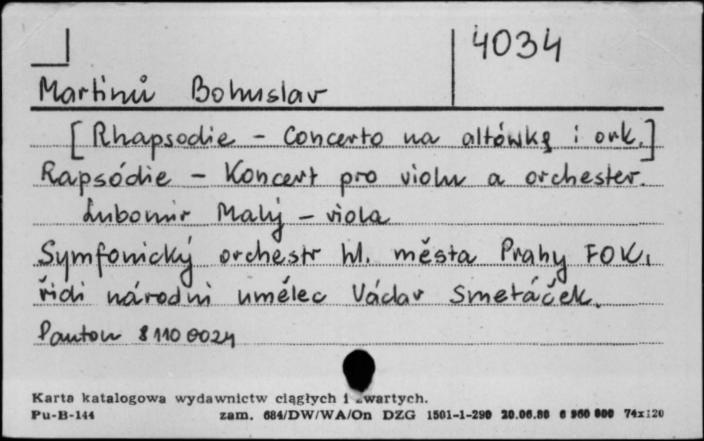 4034
Martinů Bohuslav
[Rhapsodie - Concerto na altówkę i ork.]
Rapsódie - Koncert pro violu a orchester.
Lubomír Malý - viola
Symfonický orchestr hl. města Prahy FOK,
řídi národní umělec Václav Smetáček.
Panton 8 110 0024
Karta katalogowa wydawnictw ciągłych i zwartych.
Pu-B-144 zam. 684/DW/WA/On DZG 1501-1-290 20.06.80 6 960 000 74x120